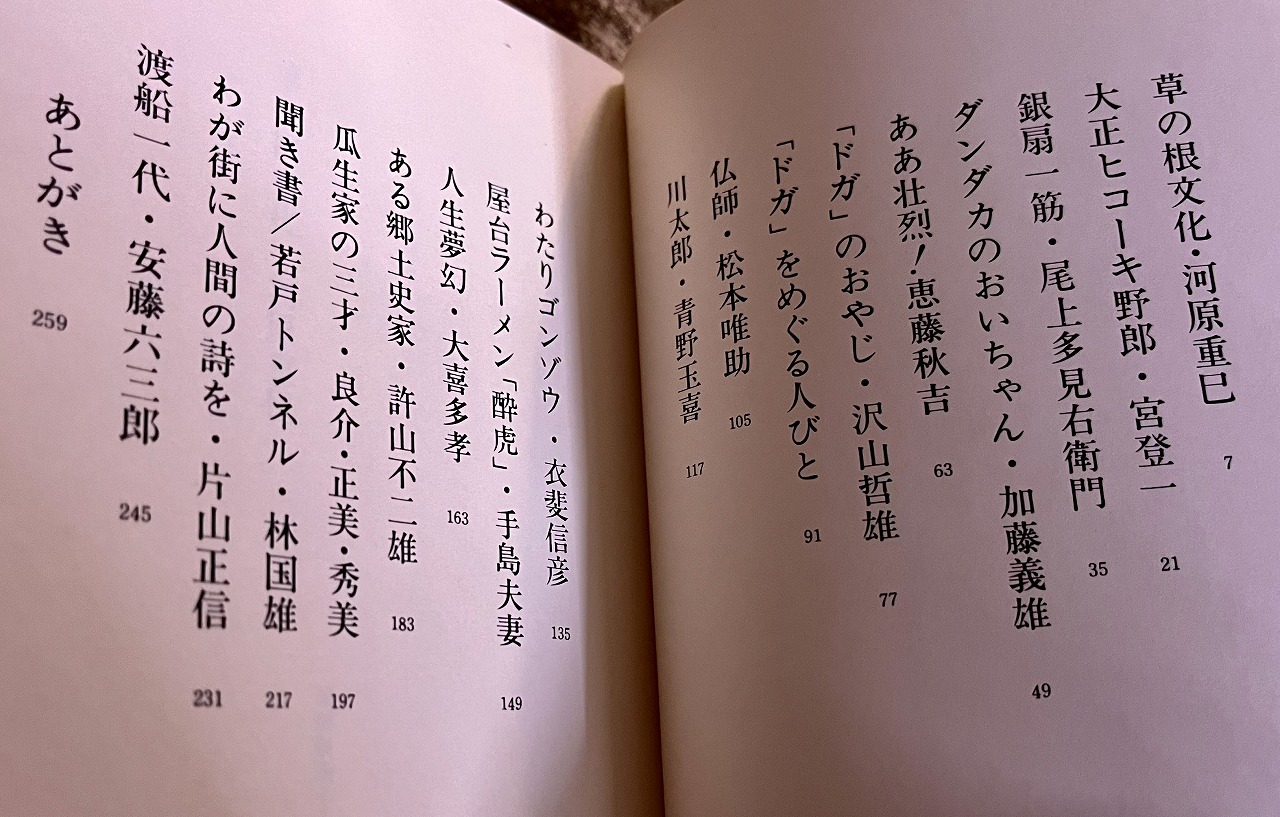 草の根文化・河原重巳 7
大正ヒコーキ野郎・宮登一 21
銀扇一筋・尾上多見右衛門 35
ダンダカのおいちゃん・加藤義雄 49
ああ壮烈！恵藤秋吉 63
「ドガ」のおやじ・沢山哲雄 77
「ドガ」をめぐる人びと 91
仏師・松本唯助 105
川太郎・青野玉喜 117
わたりゴンゾウ・衣斐信彦 135
屋台ラーメン「酔虎」・手島夫妻 149
人生夢幻・大喜多孝 163
ある郷土史家・許山不二雄 183
瓜生家の三才・良介・正美・秀美 197
聞き書／若戸トンネル・林国雄 217
わが街に人間の詩を・片山正信 231
渡船一代・安藤六三郎 245
あとがき 259